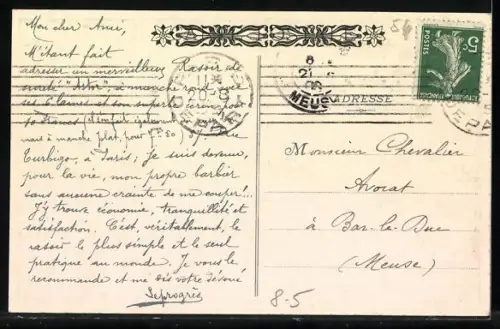 Mon cher Ami,
M'étant fait
adresser un merveilleux Rasoir de
sûreté "Aster", à manche rond
ses 6 lames et son superbe écrin, pour
10 francs (il en fait également
mais à manche plat, pour 7 F. 50)
Turbigo, à Paris; Je suis devenu,
pour la vie, mon propre barbier
sans aucune crainte de me couper!...
J'y trouve économie, tranquillité et
satisfaction. C'est, véritablement, le
rasoir le plus simple et le seul
pratique au monde. Je vous le
recommande et me dis votre dévoué
Leprogrès
54
5c
POSTES
MEUSE
ADRESSE
Monsieur Chevalier
Avocat
à Bar-le-Duc
(Meuse)
8-5